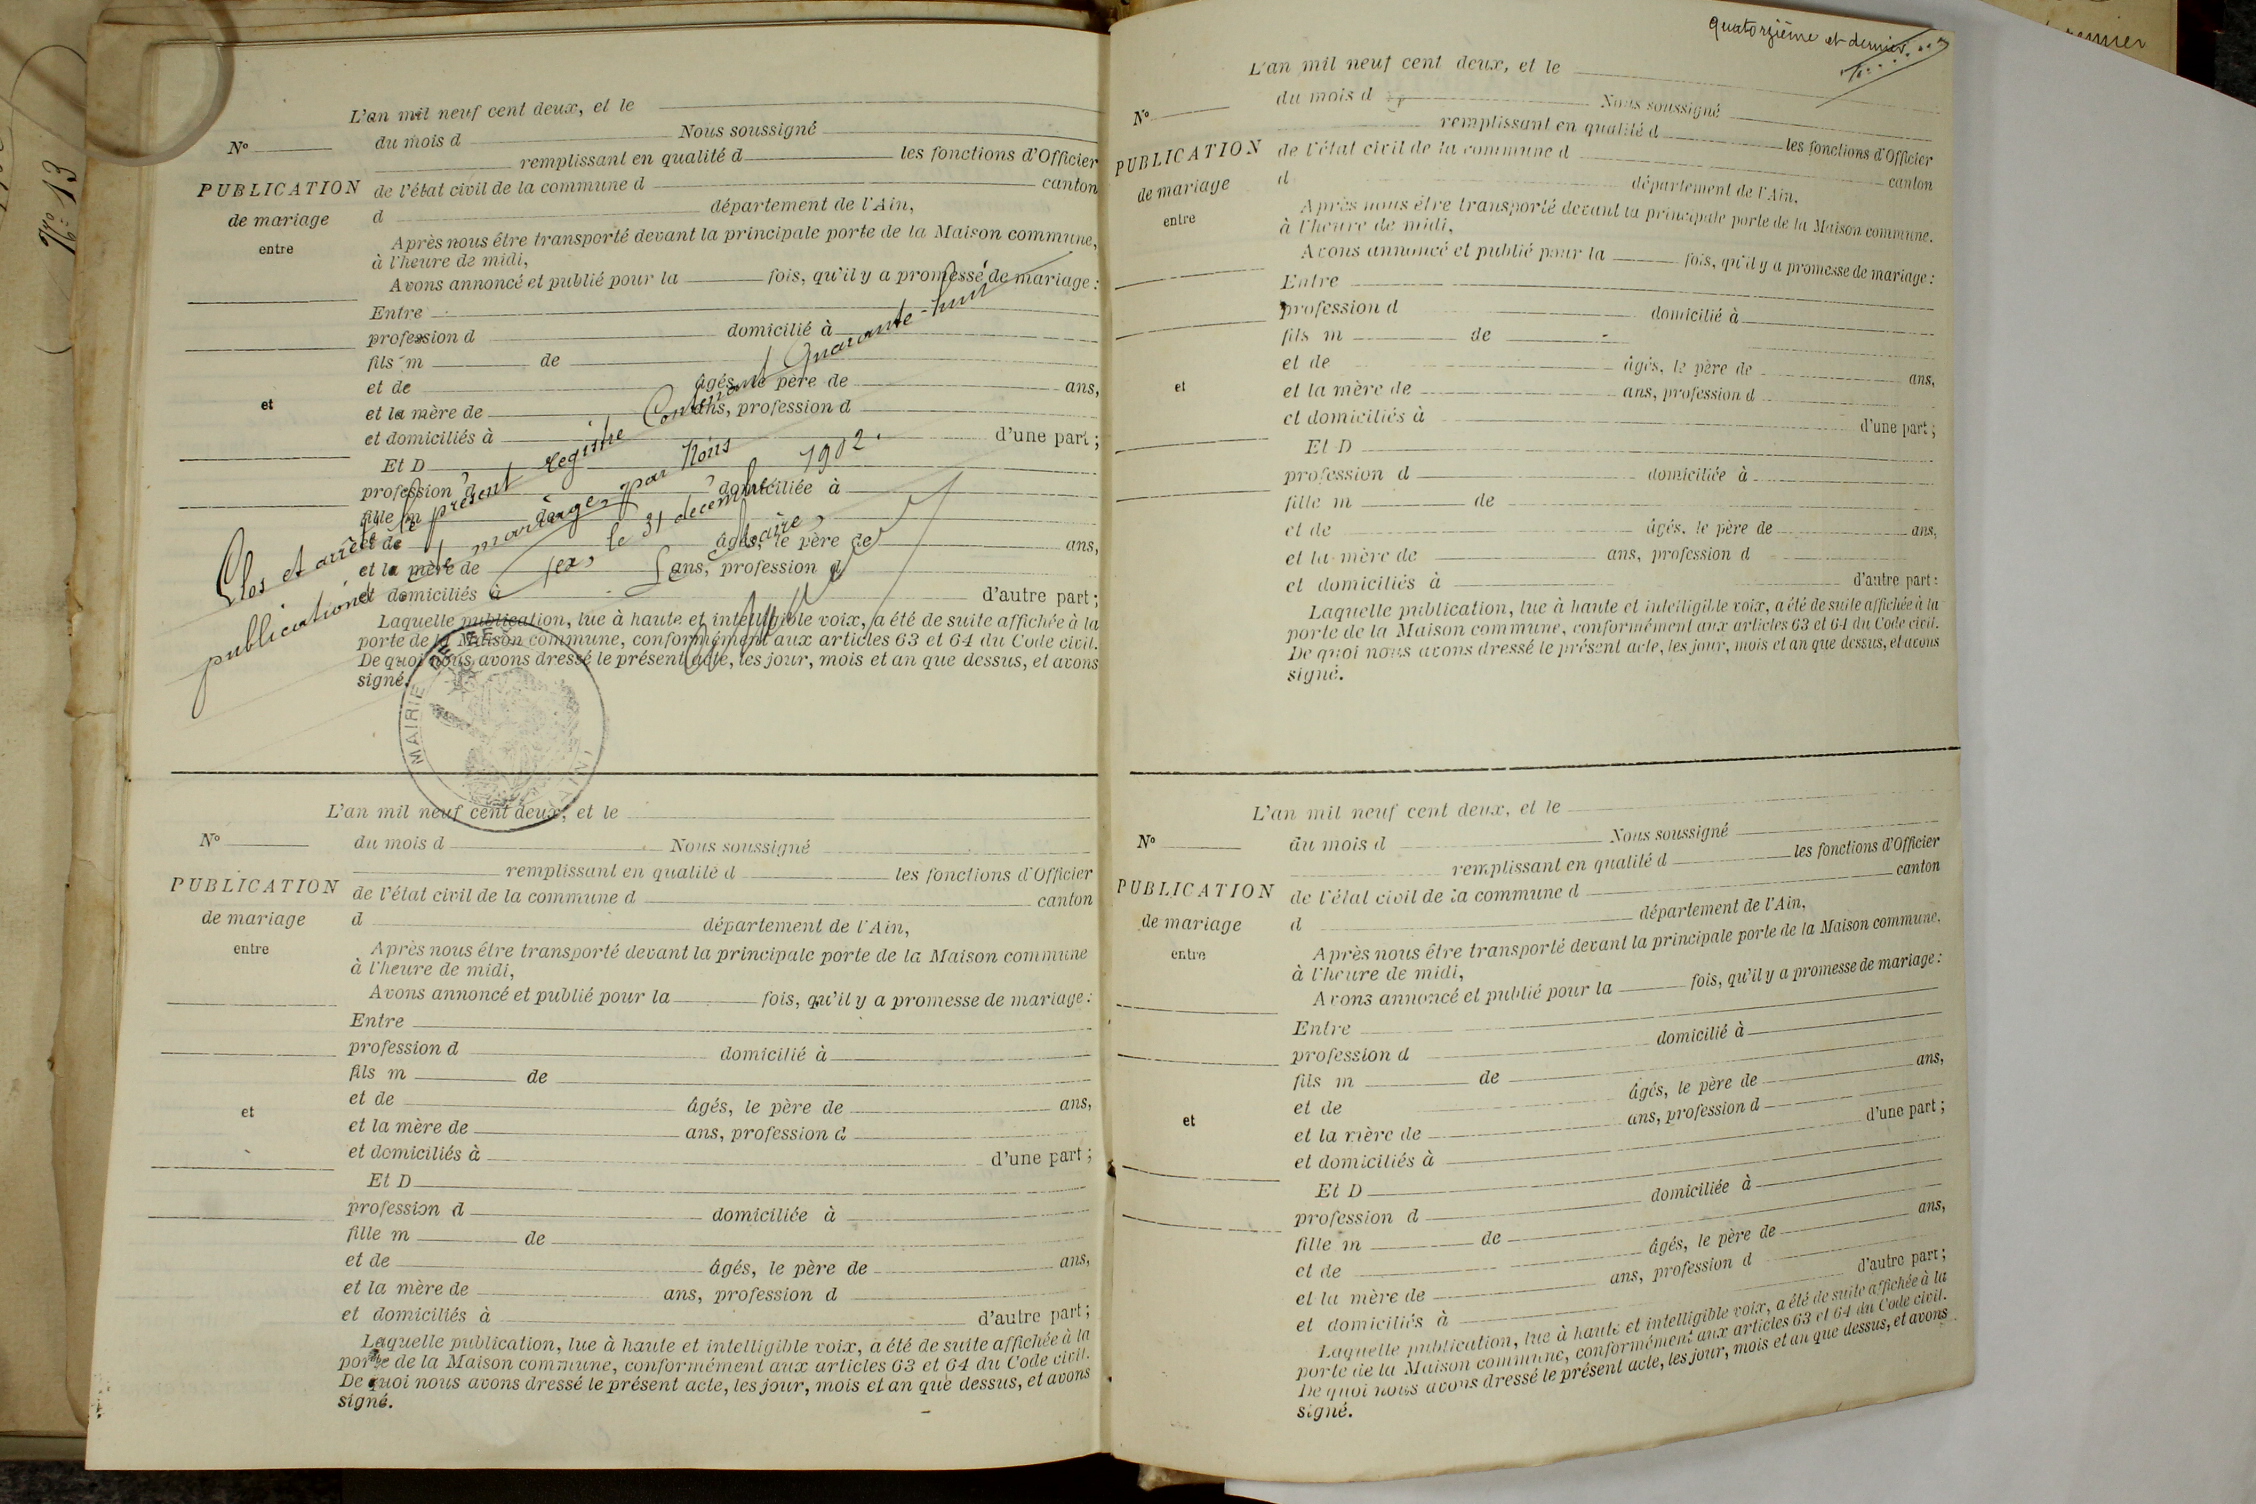 L'an mil neuf cent deux, et le
N°
du mois d Nous soussigné
remplissant en qualité d les fonctions d'Officier
PUBLICATION
de l'état civil de la commune d canton
de mariage
d département de l'Ain,
entre
Après nous être transporté devant la principale porte de la Maison commune,
à l'heure de midi,
Avons annoncé et publié pour la fois, qu'il y a promesse de mariage :
Entre
profession d domicilié à
fils m de
et de âgés, le père de ans,
et
et la mère de ans, profession d
et domiciliés à d'une part ;
Et D
profession d domiciliée à
fille m de
et de âgés, le père de ans,
et la mère de ans, profession d
et domiciliés à d'autre part ;
Laquelle publication, lue à haute et intelligible voix, a été de suite affichée à la
porte de la Maison commune, conformément aux articles 63 et 64 du Code civil.
De quoi nous avons dressé le présent acte, les jour, mois et an que dessus, et avons
signé.
Clos et arrêté le présent registre Contenant Quarante-huit
publications de mariages par Nous
Gex, le 31 décembre 1902.
Le Maire,
MAIRIE DE GEX
(AIN)
L'an mil neuf cent deux, et le
N°
du mois d Nous soussigné
remplissant en qualité d les fonctions d'Officier
PUBLICATION
de l'état civil de la commune d canton
de mariage
d département de l'Ain,
entre
Après nous être transporté devant la principale porte de la Maison commune
à l'heure de midi,
Avons annoncé et publié pour la fois, qu'il y a promesse de mariage :
Entre
profession d domicilié à
fils m de
et de âgés, le père de ans,
et
et la mère de ans, profession d
et domiciliés à d'une part ;
Et D
profession d domiciliée à
fille m de
et de âgés, le père de ans,
et la mère de ans, profession d
et domiciliés à d'autre part ;
Laquelle publication, lue à haute et intelligible voix, a été de suite affichée à la
porte de la Maison commune, conformément aux articles 63 et 64 du Code civil.
De quoi nous avons dressé le présent acte, les jour, mois et an que dessus, et avons
signé.
quatorzième et dernier
L'an mil neuf cent deux, et le
N°
du mois d Nous soussigné
remplissant en qualité d les fonctions d'Officier
PUBLICATION
de l'état civil de la commune d canton
de mariage
d département de l'Ain.
entre
Après nous être transporté devant la principale porte de la Maison commune.
à l'heure de midi,
Avons annoncé et publié pour la fois, qu'il y a promesse de mariage :
Entre
profession d domicilié à
fils m de
et de âgés, le père de ans,
et
et la mère de ans, profession d
et domiciliés à d'une part ;
Et D
profession d domiciliée à
fille m de
et de âgés. le père de ans,
et la mère de ans, profession d
et domiciliés à d'autre part :
Laquelle publication, lue à haute et intelligible voix, a été de suite affichée à la
porte de la Maison commune, conformément aux articles 63 et 64 du Code civil.
De quoi nous avons dressé le présent acte, les jour, mois et an que dessus, et avons
signé.
L'an mil neuf cent deux, et le
N°
du mois d Nous soussigné
remplissant en qualité d les fonctions d'Officier
PUBLICATION
de l'état civil de la commune d canton
de mariage
d département de l'Ain,
entre
Après nous être transporté devant la principale porte de la Maison commune.
à l'heure de midi,
Avons annoncé et publié pour la fois, qu'il y a promesse de mariage :
Entre
profession d domicilié à
fils m de
et de âgés, le père de ans,
et
et la mère de ans, profession d
et domiciliés à d'une part ;
Et D
profession d domiciliée à
fille m de
et de âgés, le père de ans,
et la mère de ans, profession d
et domiciliés à d'autre part ;
Laquelle publication, lue à haute et intelligible voix, a été de suite affichée à la
porte de la Maison commune, conformément aux articles 63 et 64 du Code civil.
De quoi nous avons dressé le présent acte, les jour, mois et an que dessus, et avons
signé.
N° 13